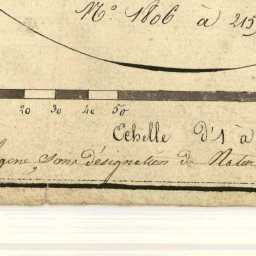 N° 1806 à 215
20 30 40 50
Echelle d'1 à
sans désignation de Natur